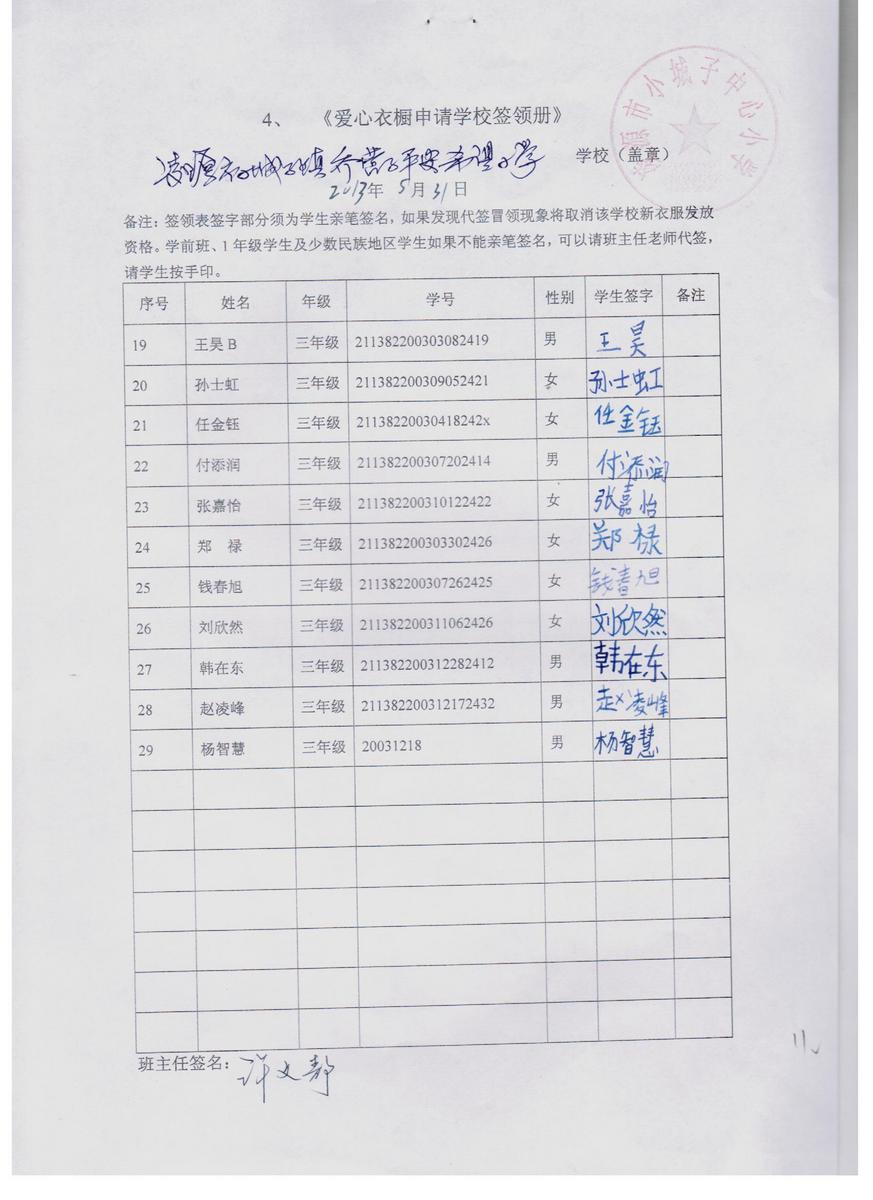 4、 《爱心衣橱申请学校签领册》
凌源市小城子镇乔营子平安希望小学 学校（盖章）
凌源市小城子中心小学
2013年 5月31日
备注：签领表签字部分须为学生亲笔签名，如果发现代签冒领现象将取消该学校新衣服发放
资格。学前班、1年级学生及少数民族地区学生如果不能亲笔签名，可以请班主任老师代签，
请学生按手印。
序号 姓名 年级 学号 性别 学生签字 备注
19 王昊B 三年级 211382200303082419 男 王昊
20 孙士虹 三年级 211382200309052421 女 孙士虹
21 任金钰 三年级 21138220030418242x 女 任金钰
22 付添润 三年级 211382200307202414 男 付添润
23 张嘉怡 三年级 211382200310122422 女 张嘉怡
24 郑 禄 三年级 211382200303302426 女 郑禄
25 钱春旭 三年级 211382200307262425 女 钱春旭
26 刘欣然 三年级 211382200311062426 女 刘欣然
27 韩在东 三年级 211382200312282412 男 韩在东
28 赵凌峰 三年级 211382200312172432 男 赵凌峰
29 杨智慧 三年级 20031218 男 杨智慧
班主任签名：